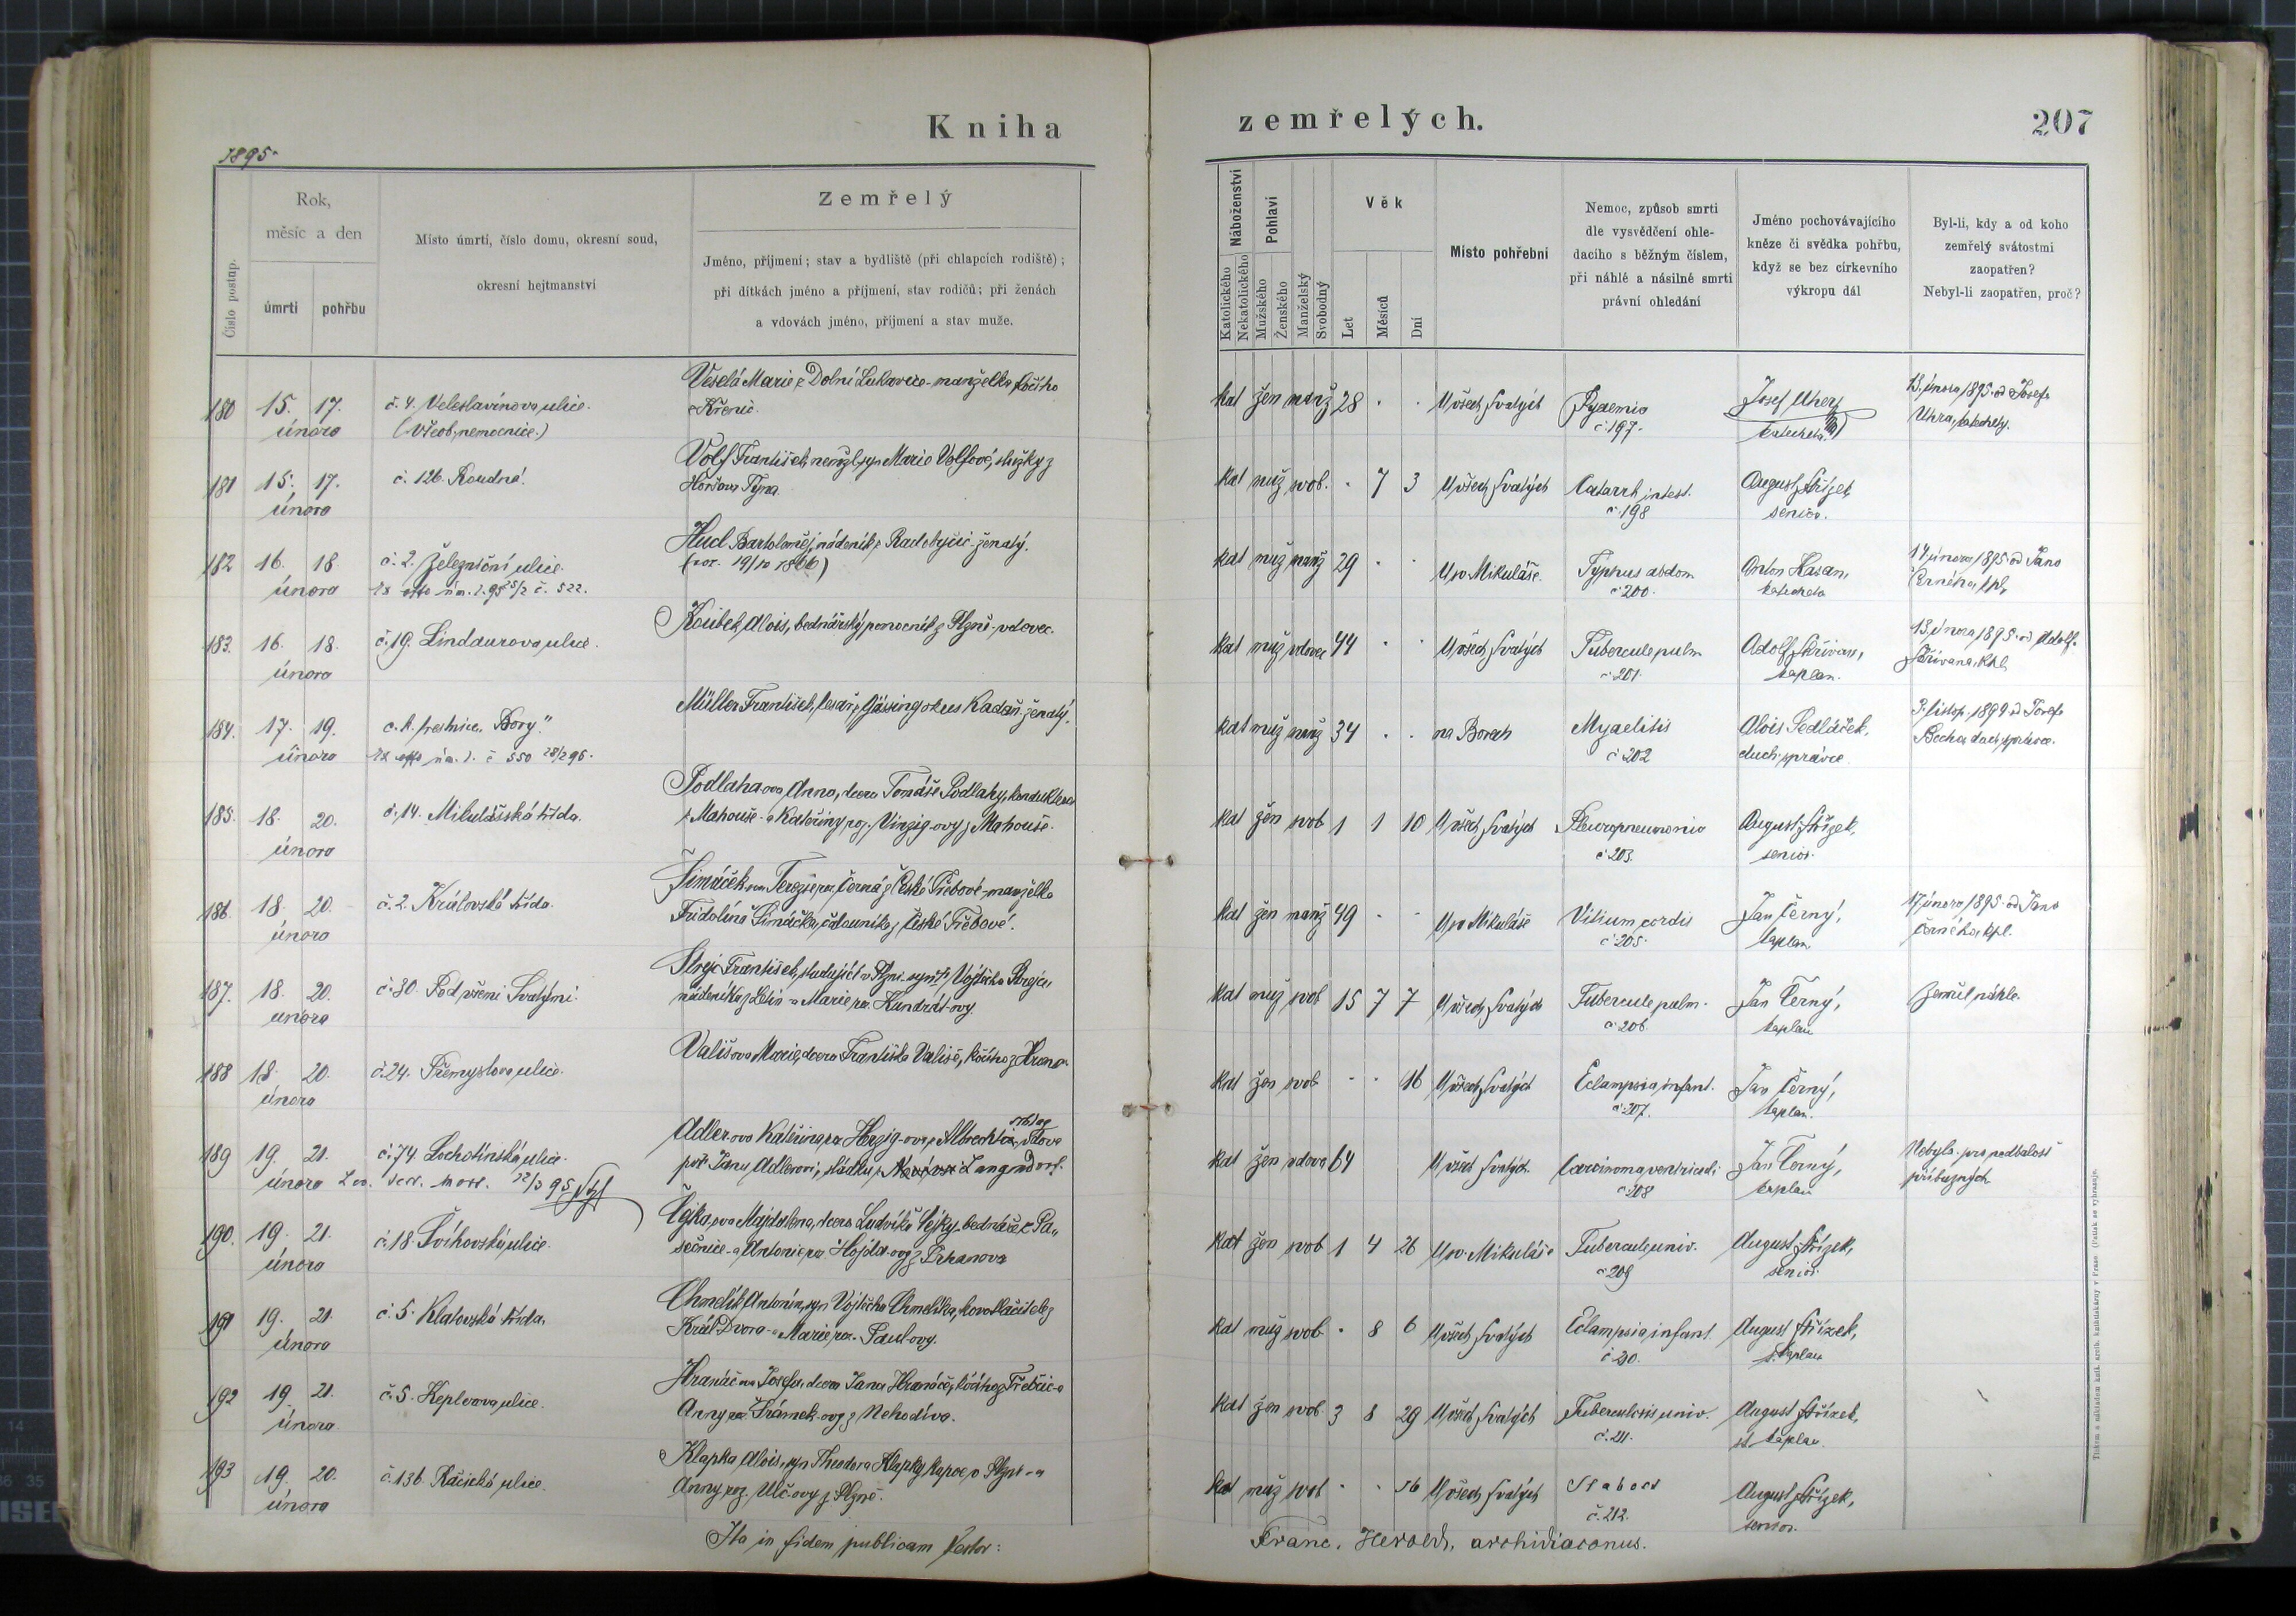 Kniha
zemřelých.
207
1895.
Číslo postup.
Rok,
měsíc a den
úmrtí
pohřbu
Místo úmrtí, číslo domu, okresní soud,
okresní hejtmanství
Zemřelý
Jméno, příjmení; stav a bydliště (při chlapcích rodiště);
při dítkách jméno a příjmení, stav rodičů; při ženách
a vdovách jméno, příjmení a stav muže.
Náboženství
Katolického
Nekatolického
Pohlaví
Mužského
Ženského
Manželský
Svobodný
Věk
Let
Měsíců
Dní
Místo pohřební
Nemoc, způsob smrti
dle vysvědčení ohle-
dacího s běžným číslem,
při náhlé a násilné smrti
právní ohledání
Jméno pochovávajícího
kněze či svědka pohřbu,
když se bez církevního
výkropu dál
Byl-li, kdy a od koho
zemřelý svátostmi
zaopatřen?
Nebyl-li zaopatřen, proč?
180 15. 17. února
č. 4. Veleslavínova ulice.
(všeob. nemocnice.)
Veselá Marie z Dolní Lukavice - manželka kočího
z Křenic.
kat žen manž 28 . . U všech Svatých
Pyaemia
č. 197.
Josef Uher
katecheta.
13. února 1895. od Josefa
Uhra, katechety.
181 15. 17. února
č. 126. Roudná.
Volf František, nemžl. syn Marie Volfové, služky z
Horšova Týna.
kat muž svob. . 7 3 U všech Svatých
Catarrh intest.
č. 198
August Střízek,
senior.
182 16. 18. února
č. 2. Železniční ulice.
č. 522.
Hucl Bartoloměj, nádeník z Radobyčic - ženatý.
(nar. 19/10 1866)
kat muž manž 29 . . U sv. Mikuláše.
Typhus abdom
č. 200.
Anton Hasan,
katecheta
14. února 1895. od Jana
Černého, kpl.
183. 16. 18. února
č. 19. Lindaurova ulice.
Koubek Alois, bednářský pomocník z Plzně - vdovec.
kat muž vdovec 44 . . U všech Svatých
Tubercule pulm
č. 201.
Adolf Skřivan,
kaplan.
13. února 1895. od Adolfa
Skřivana, kpl.
184. 17. 19. února
č. 1. trestnice „Bory."
č 550 28/2 96.
Müller František, tesař z Gässing okres Kadaň. ženatý.
kat muž manž 34 . . na Borech
Myaelitis
č 202
Alois Sedláček,
duch. správce.
3. listop. 1894 od Josefa
Becha, duch. správce.
185. 18. 20. února
č. 14. Mikulášská třída.
Podlahaova Anna, dcera Tomáše Podlahy, konduktera
z Mahouše - a Kateřiny roz. Vinzig-ovy z Mahouše.
kat žen svob 1 1 10 U všech Svatých
Pleuropneumonia
č 203.
August Střízek,
senior.
186. 18. 20. února
č. 2. Královská třída.
Šimáčekova Terezie roz. Černá z České Třebové - manželka
Fridolína Šimáčka, čalouníka z České Třebové.
kat žen manž 49 . . U sv. Mikuláše
Vitium cordis
č 205.
Jan Černý,
kaplan
17. února 1895. od Jana
Černého, kpl.
187. 18. 20. února
č. 30. Pod všemi Svatými.
František, studující v Plzni - syn Vojtěcha
nádeníka z Letin a Marie roz. Kundrát-ovy.
kat muž svob 15 7 7 U všech Svatých
Tubercule pulm.
č 206.
Jan Černý,
kaplan
Zemřel náhle.
188 18. 20. února
č. 24. Přemyslova ulice.
Vališova Marie, dcera Františka Vališe, kočího z
kat žen svob . . 16 U všech Svatých
Eclampsia infant.
č. 207.
Jan Černý,
kaplan.
189 19. 21. února
č. 74. Lochotínská ulice.
Adlerova Kateřina, roz. Herzig-ova z Albrechtic, vdova
po Janu Adlerovi, sládku z Langendorf.
kat žen vdova 64 U všech Svatých.
Carcinoma ventriculi
č. 208
Jan Černý,
kaplan
Nebyla. pro nedbalost
příbuzných
190. 19. 21. února
č. 18. Švihovská ulice.
Čejkaova Majdalena, dcera Ludvíka Čejky, bednáře z Pa„
sečnice - a Antonie roz. Hojda-ovy z Trhanova
kat žen svob 1 4 26 U sv. Mikuláše
Tubercule univ.
č 209
August Střízek,
senior.
191 19. 21. února
č. 5. Klatovská třída.
Chmelík Antonín, syn Vojtěcha Chmelíka, kovotlačitele z
Král. Dvora - a Marie roz. Paul-ovy.
kat muž svob . 8 6 U všech Svatých
Eclampsia infant.
č. 210.
August Střízek,
s. kaplan
192 19. 21. února
č. 5. Keplerova ulice.
Hranáčova Josefa, dcera Jana Hranáče, kočího z Třebčic - a
Anny roz. Frámek-ovy z Nehodiva.
kat žen svob. 3 8 29 U všech Svatých
Tuberculosis univ.
č. 211.
August Střízek,
st. kaplan.
193 19. 20. února
č. 136. Račická ulice.
Klapka Alois, syn Theodora Klapky, v Plzni - a
Anny roz. Ulč-ovy z Plzně.
kat muž svob . . 16 U všech Svatých
Slabost
č. 212.
August Střízek,
senior.
Ita in fidem publicam testor:
Franc. Herold, archidiaconus.